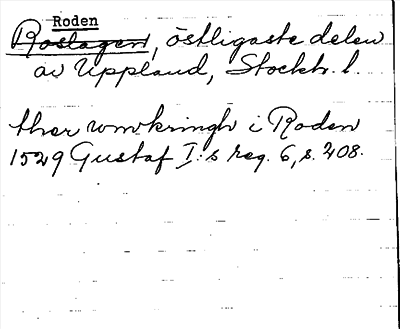 Roden
Roslagen, östligaste delen
av Uppland, Stockh. l.
ther wmkringh i Roden
1529 Gustaf I:s reg. 6, s. 208.